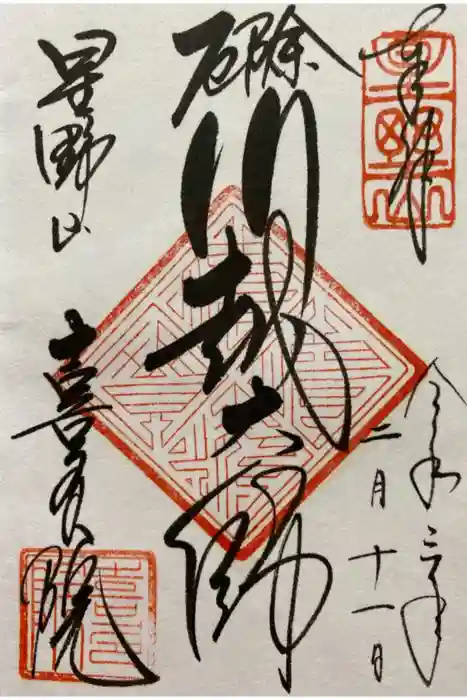 奉拝
令和三年
二月十一日
厄除
川越大師
星野山
喜多院